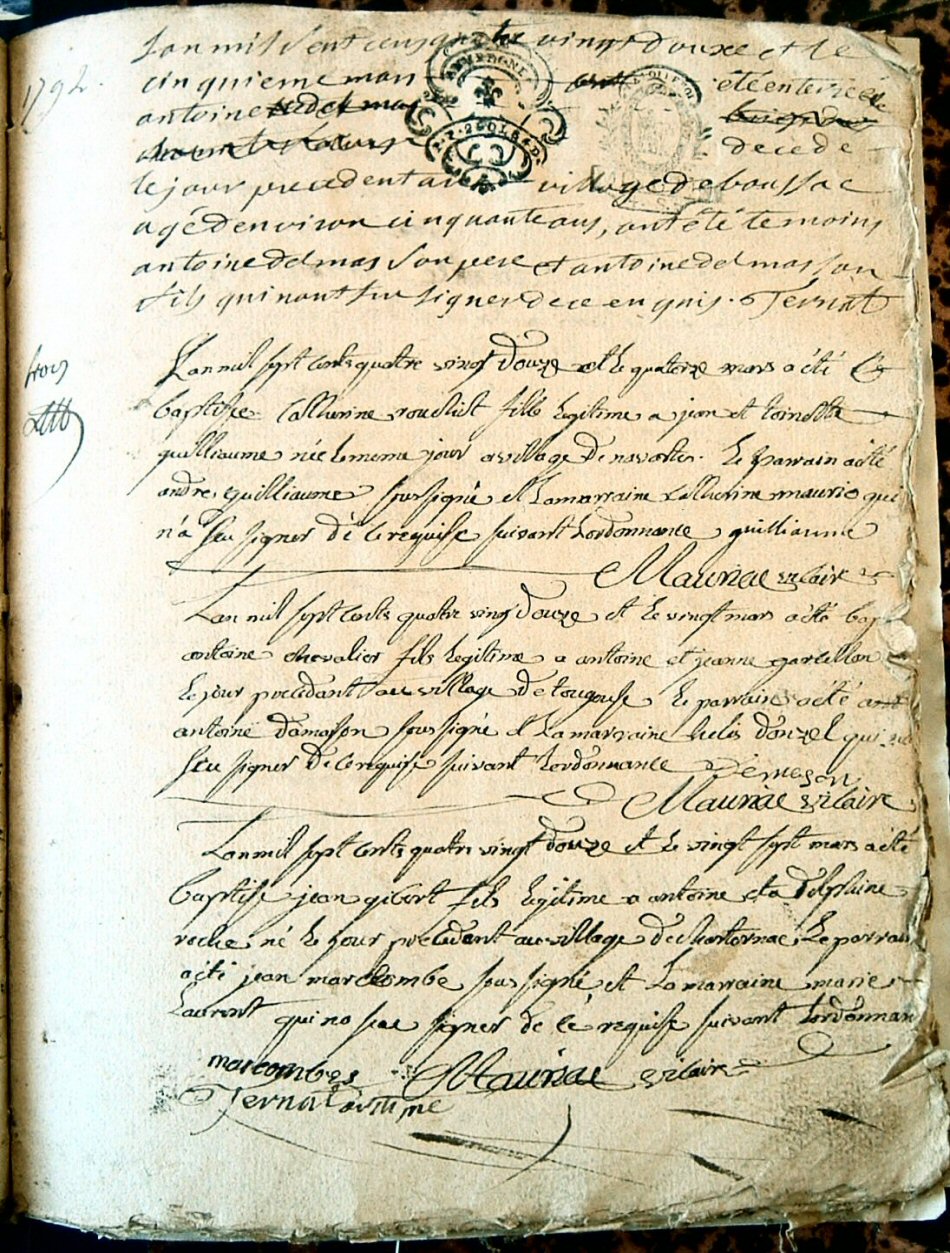 1792
Lan mil sept cens quatre vingt douxe et le
cinquieme mars été enterré
antoine
AUVERGNE
decede
le jour precedent au village de boussac
agé denviron cinquante ans, ont été temoins
antoine delmas son pere et antoine delmas son
fils qui nont sçu signer de ce enquis. Ternat
trois
Lan mil sept cents quatre vingt douze et le quatorze mars a été
baptisee Catherine rouchist fille legitime a jean et toinette
guilliaume née le meme jour a village de navaste. le parrain a été
andre guilliaume soussigné et La marraine Catherine maurio qui
n'a sceu signer de ce requise suivant Lordonnance guilliaume
Mauriac vicaire
Lan mil sept cents quatre vingt douze et le vingt mars a été bap
antoine chevalier fils legitime a antoine et jeanne garcellon
le jour precedant au village de tougouse le parrain a été
antoine damaison soussigné et La marraine helis donzel qui
sceu signer de ce requise suivant Lordonnance Demeson
Mauriac vicaire
Lan mil sept cents quatre vingt douze et le vingt sept mars a été
baptise jean gibert fils legitime a antoine et a delphine
roche né le jour precedant au village de chasternac. Le parrain
a été jean marcombe soussigné et La marraine marie
Laurent qui na sceu signer de ce requise suivant Lordonnan
marcombes Mauriac vicaire
Ternat